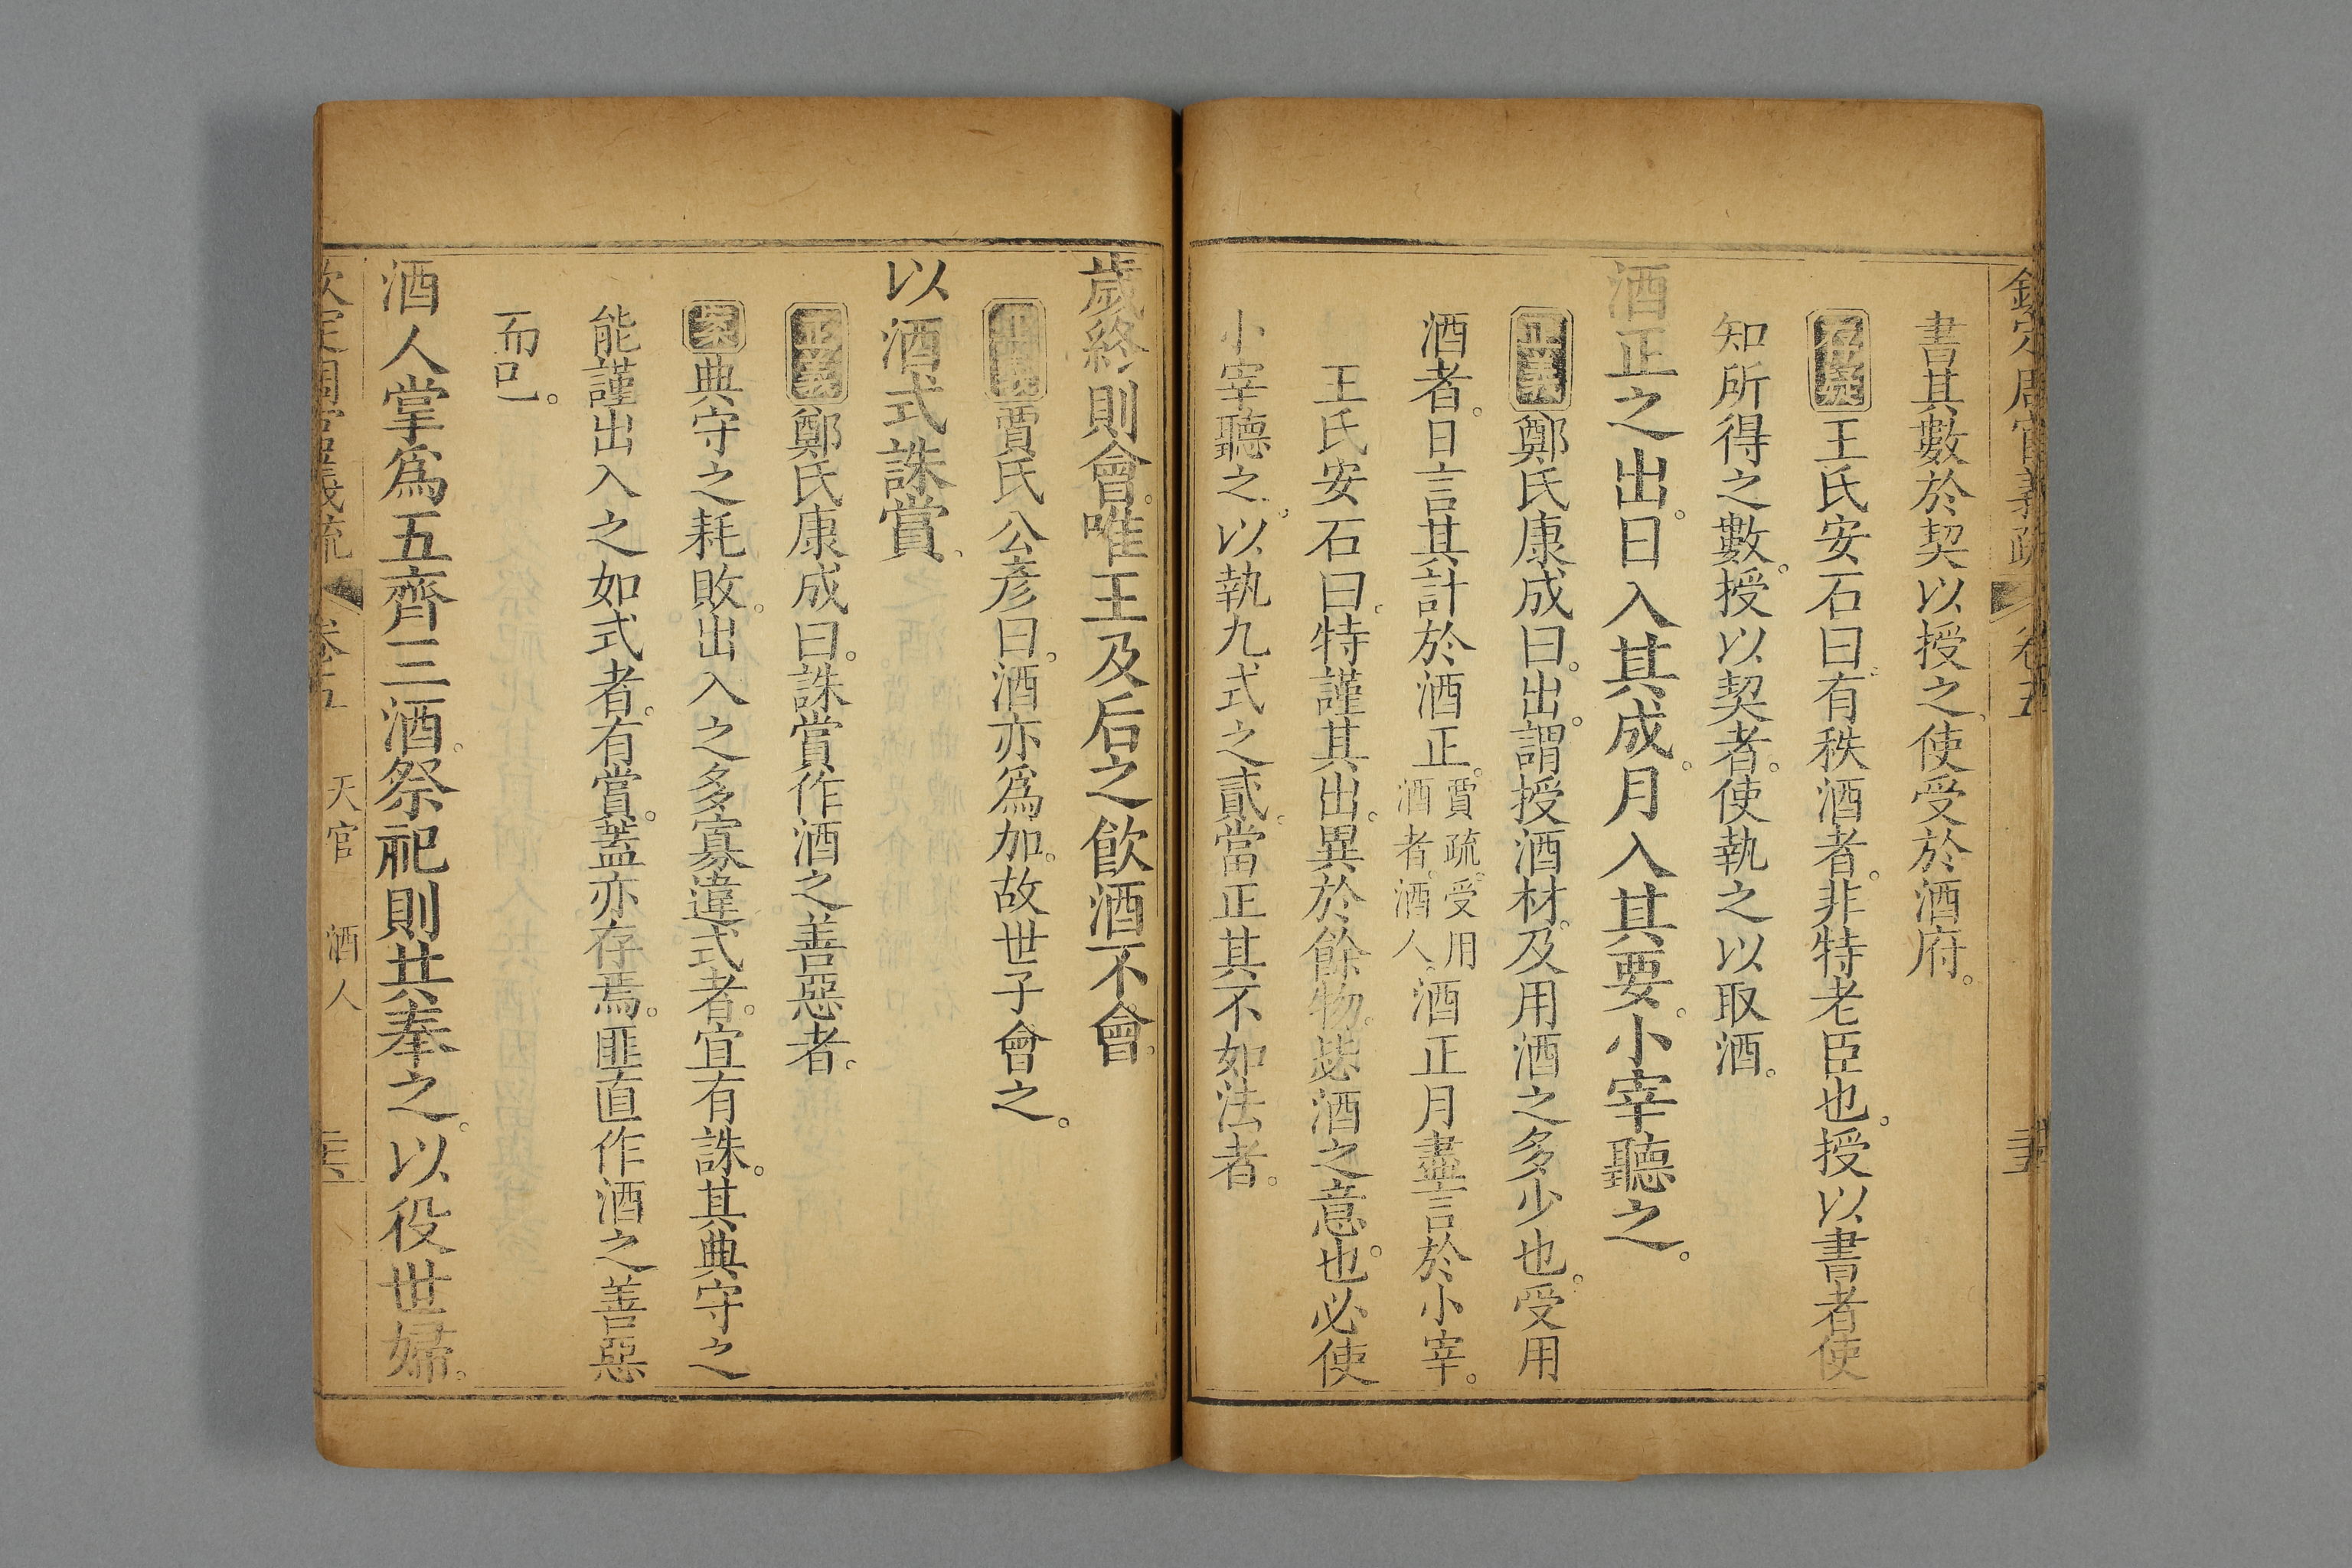 欽定周官義疏 卷五
書其數於契以授之使受於酒府。
存異王氏安石曰有秩酒者。非特老臣也。授以書者使
知所得之數。授以契者。使執之以取酒。
酒正之出。日入其成。月入其要。小宰聽之。
正義鄭氏康成曰。出。謂授酒材。及用酒之多少也。受用
酒者。日言其計於酒正。賈疏。受用酒者。酒人。酒正月盡言於小宰。
王氏安石曰。特謹其出。異於餘物。毖酒之意也。必使
小宰聽之。以執九式之貳。當正其不如法者。
歲終則會。唯王及后之飲酒不會。
正義賈氏公彥曰。酒亦爲加。故世子會之。
以酒式誅賞。
正義鄭氏康成曰。誅賞作酒之善惡者。
案典守之耗敗。出入之多寡違式者。宜有誅。其典守之
能謹出入之如式者。有賞。蓋亦存焉。匪直作酒之善惡
而已。
酒人掌爲五齊三酒。祭祀則共奉之。以役世婦。
欽定周官義疏 卷五 天官 酒人